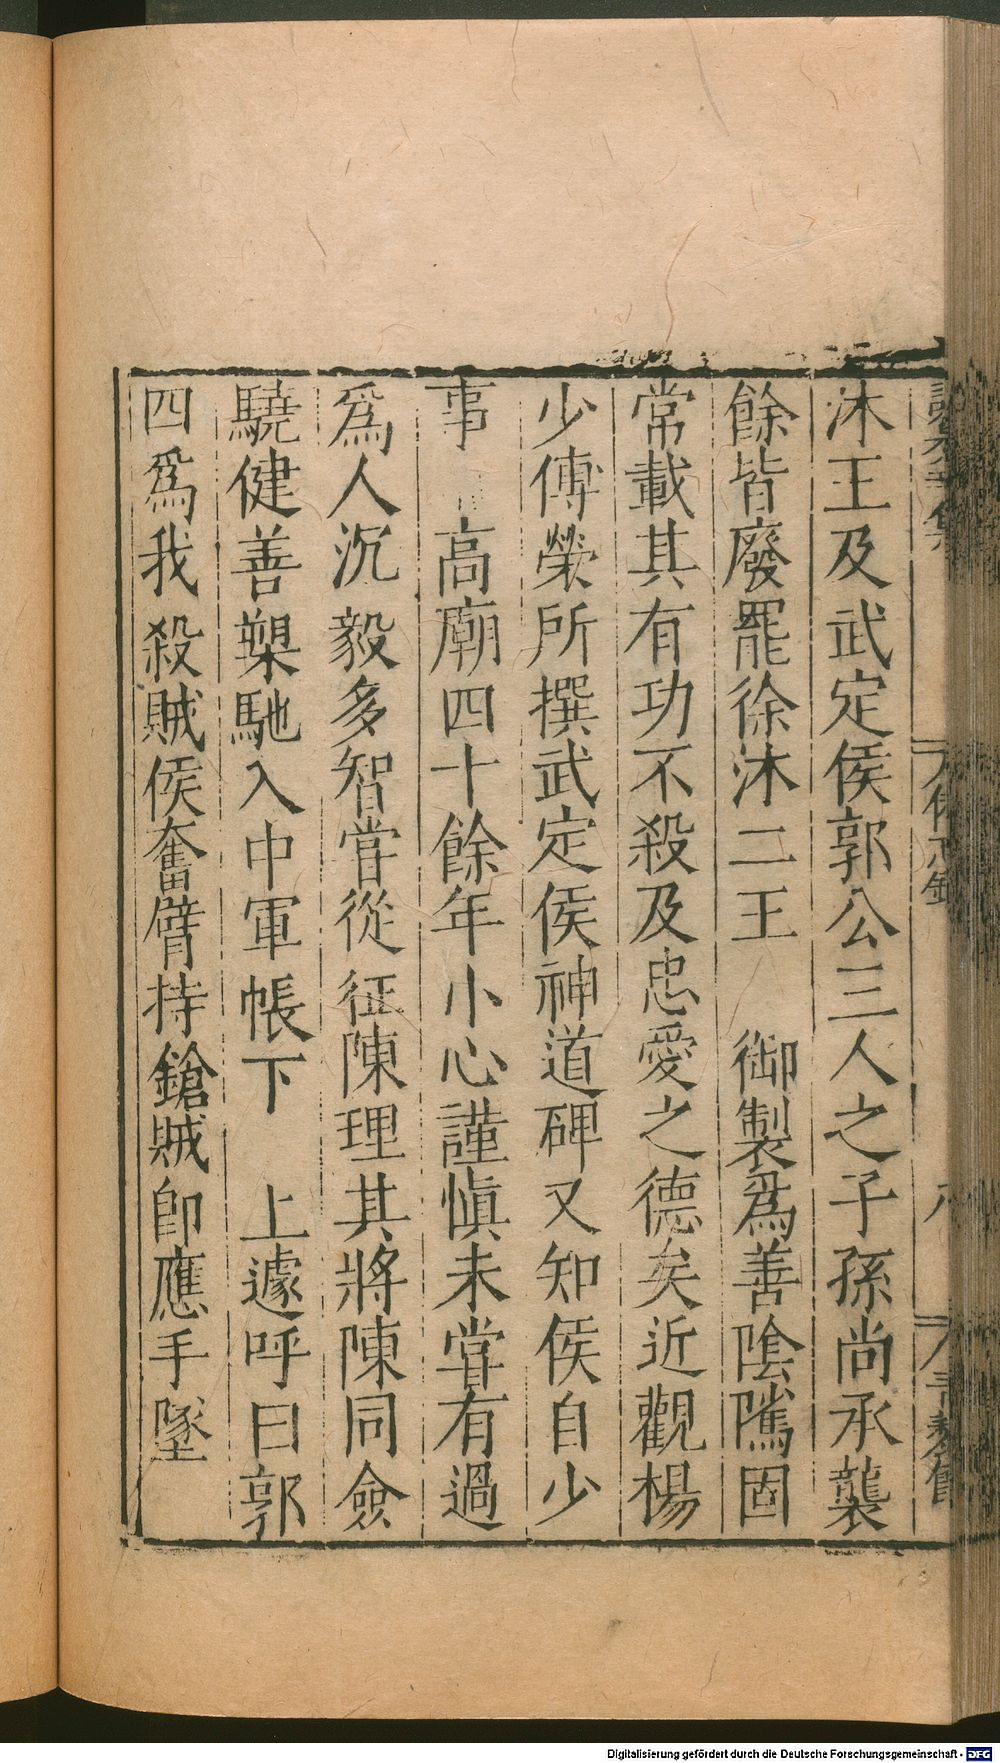 沐王及武定侯郭公三人之子孫尚承襲
餘皆廢罷徐沐二王　御製為善陰隲固
常載其有功不殺及忠愛之德矣近觀楊
少傅榮所撰武定侯神道碑又知侯自少
事　高廟四十餘年小心謹慎未甞有過
為人沉毅多智甞從征陳理其將陳同僉
驍健善槊馳入中軍帳下　上遽呼曰郭
四為我殺賊侯奮臂持鎗賊卽應手墜
Digitalisierung gefördert durch die Deutsche Forschungsgemeinschaft - DFG